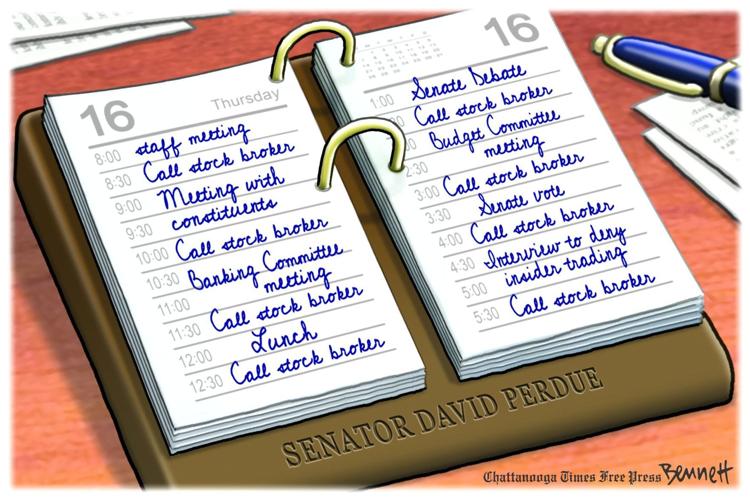 16
Thursday
8:00 staff meeting
8:30 Call stock broker
9:00 Meeting with
9:30 constituents
10:00 Call stock broker
10:30 Banking Committee
11:00 meeting
11:30 Call stock broker
12:00 Lunch
12:30 Call stock broker
16
Senate Debate
1:00 Call stock broker
Budget Committee
2:30 meeting
3:00 Call stock broker
3:30 Senate vote
4:00 Call stock broker
4:30 Interview to deny
5:00 insider trading
5:30 Call stock broker
SENATOR DAVID PERDUE
Chattanooga Times Free Press BENNETT